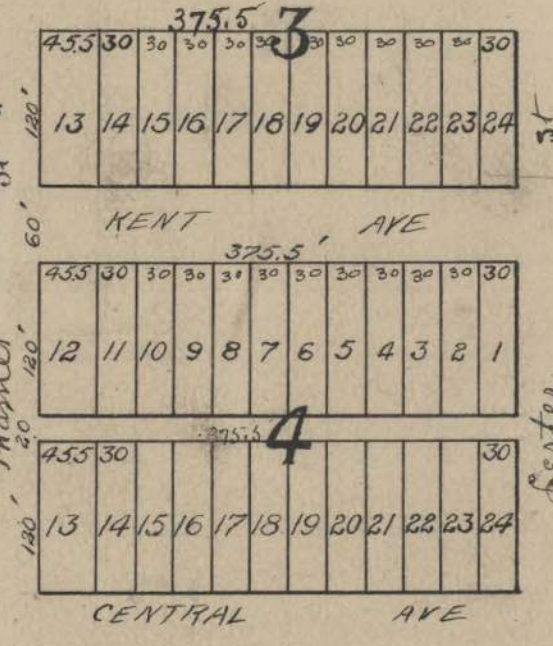 375.5
3
45.5 30 30 30 30 30 30 30 30 30 30 30
120'
13 14 15 16 17 18 19 20 21 22 23 24
St
60'
KENT AVE
375.5'
45.5 30 30 30 30 30 30 30 30 30 30 30
120'
12 11 10 9 8 7 6 5 4 3 2 1
20'
375.5
4
45.5 30 30
120'
13 14 15 16 17 18 19 20 21 22 23 24
CENTRAL AVE